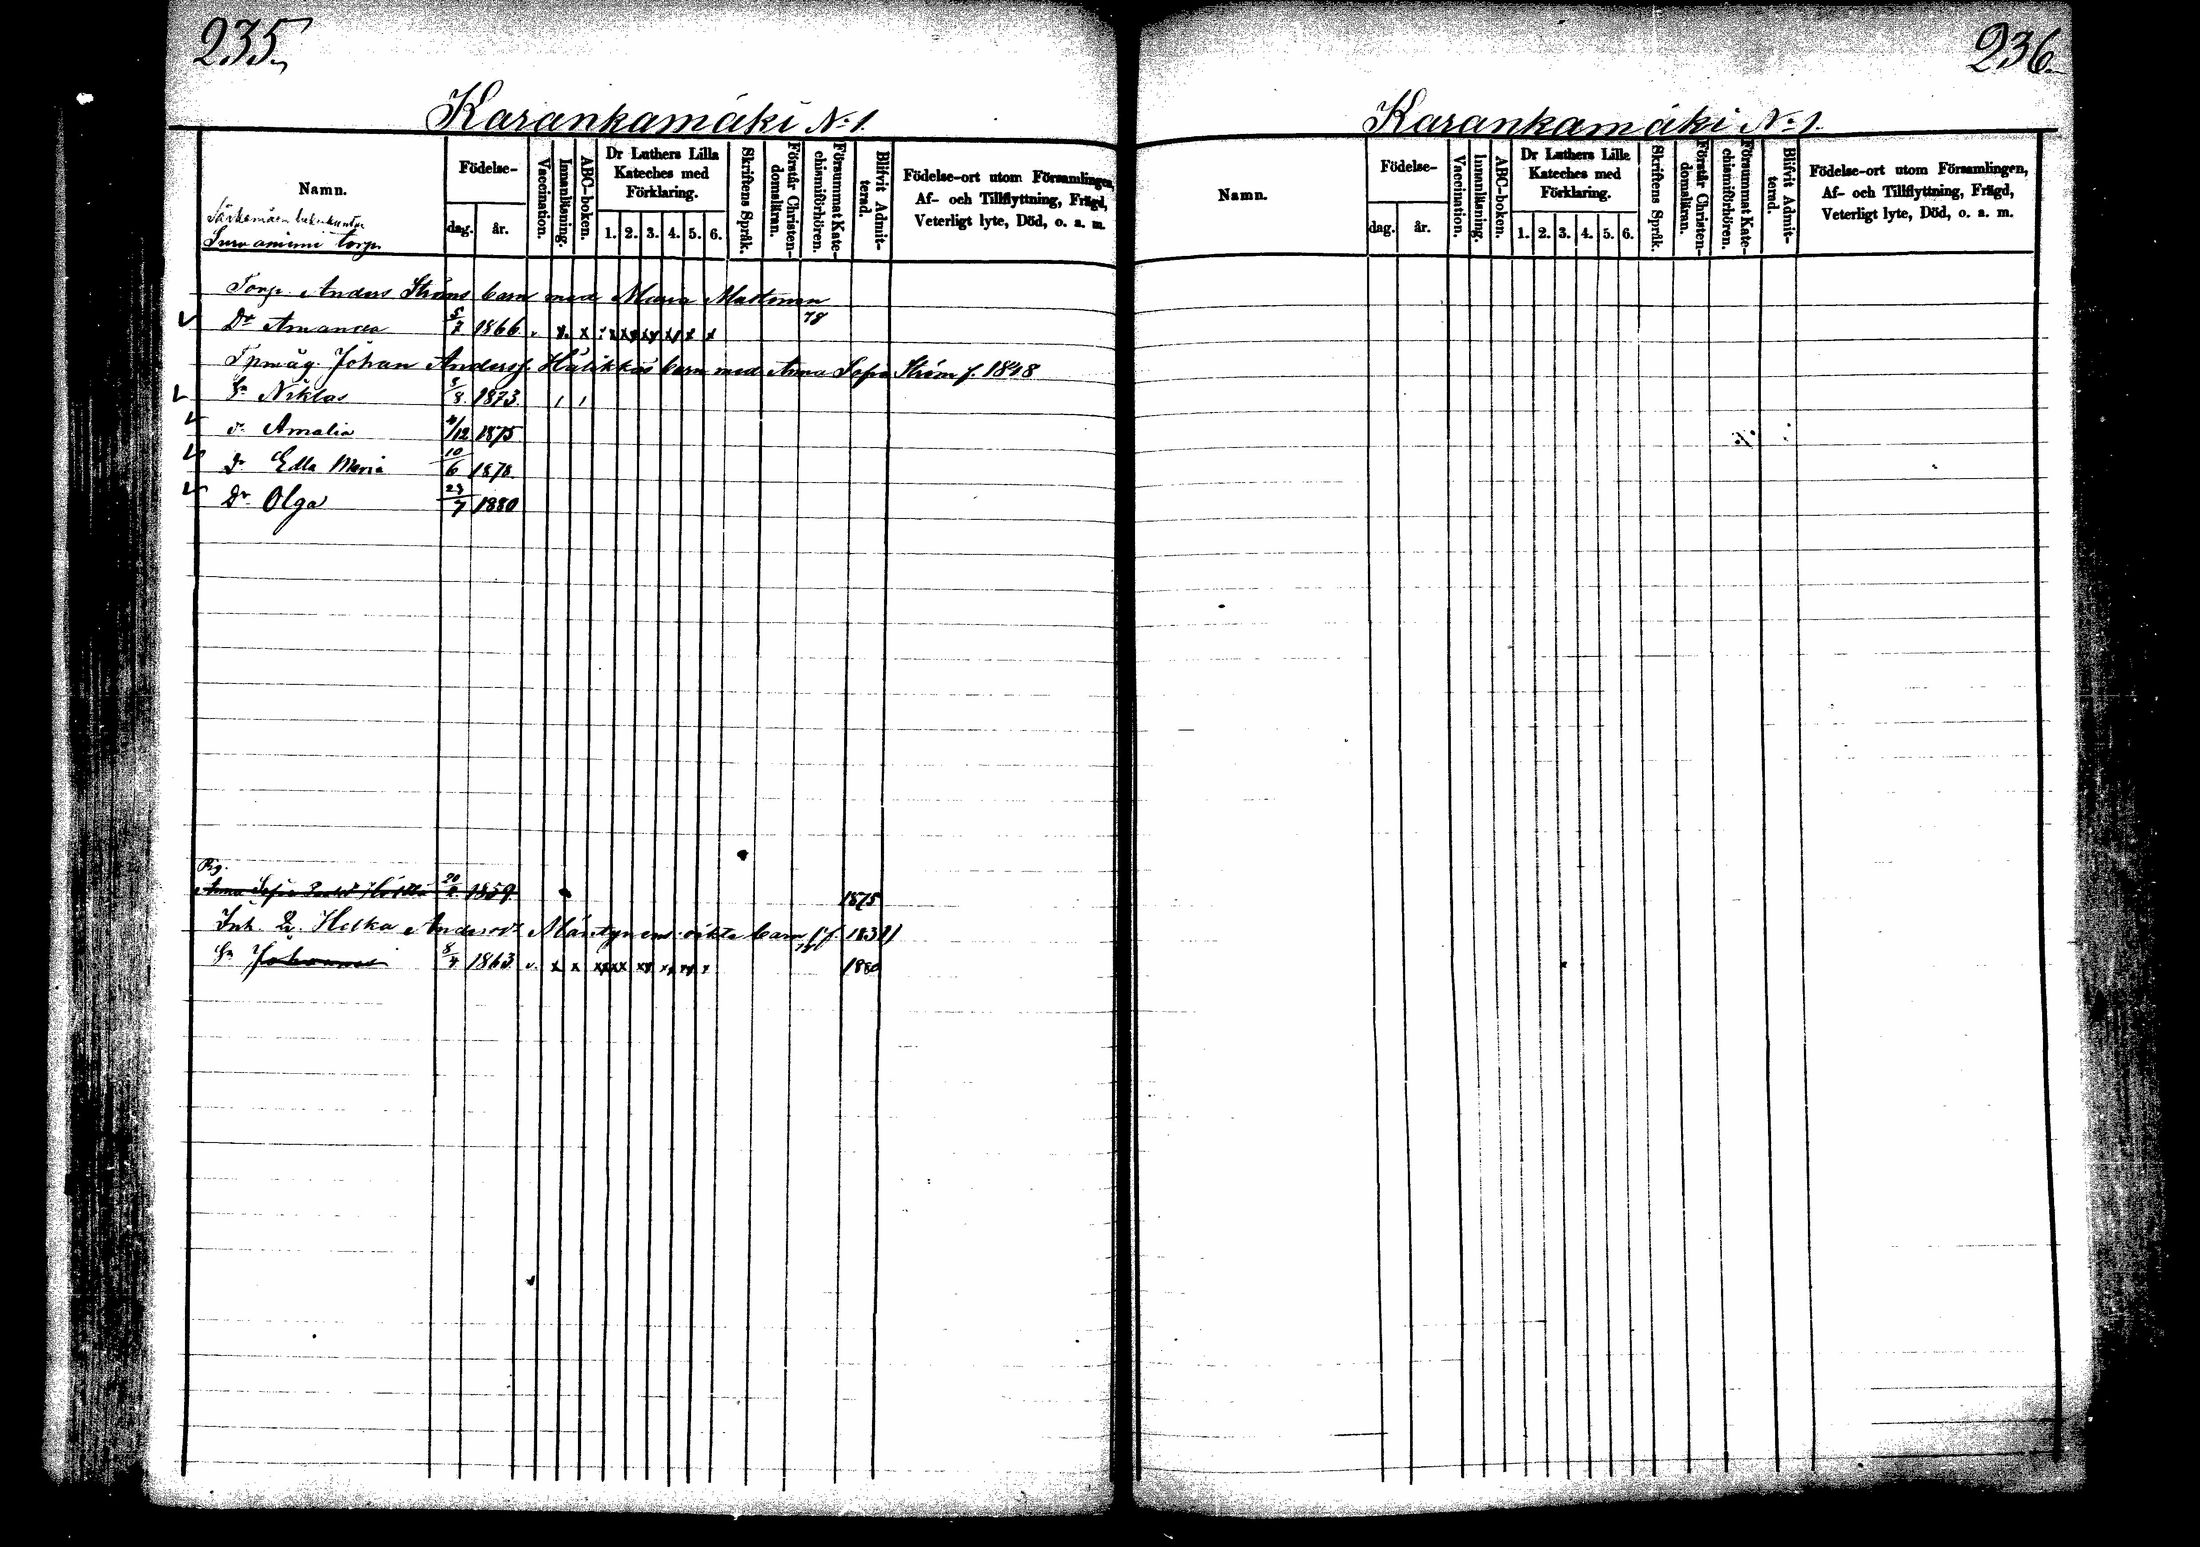 235.
Karankamäki No 1.
Namn.
torp.
Födelse-
dag.
år.
Vaccination.
Innanläsning.
ABC-boken.
Dr Luthers Lilla
Kateches med
Förklaring.
1. 2. 3. 4. 5. 6.
Skriftens Språk.
Förstår Christen-
domsläran.
Försummat Kate-
chismiförhören.
Blifvit Admit-
terad.
Födelse-ort utom Församlingen,
Af- och Tillflyttning, Frägd,
Veterligt lyte, Död, o. a. m.
Torp. Anders Ströms barn med Maria
Dr Amanda 1866. x x 78
Johan Anderss. barn med Anna Sofia Ström f. 1848
Sn Niklas 1873.
Dr Amalia /12 1875
Dr Edla Maria 10/6 1878
Dr Olga 23/7 1880
Pig.
Anna Sofia 1859. 1875
Inh. Helka Andersdr barn
Sn Johannes 8/4 1863 x x 1880
236.
Karankamäki No 1.
Namn.
Födelse-
dag.
år.
Vaccination.
Innanläsning.
ABC-boken.
Dr Luthers Lille
Kateches med
Förklaring.
1. 2. 3. 4. 5. 6.
Skriftens Språk.
Förstår Christen-
domsläran.
Försummat Kate-
chismiförhören.
Blifvit Admit-
terad.
Födelse-ort utom Församlingen,
Af- och Tillflyttning, Frägd,
Veterligt lyte, Död, o. a. m.